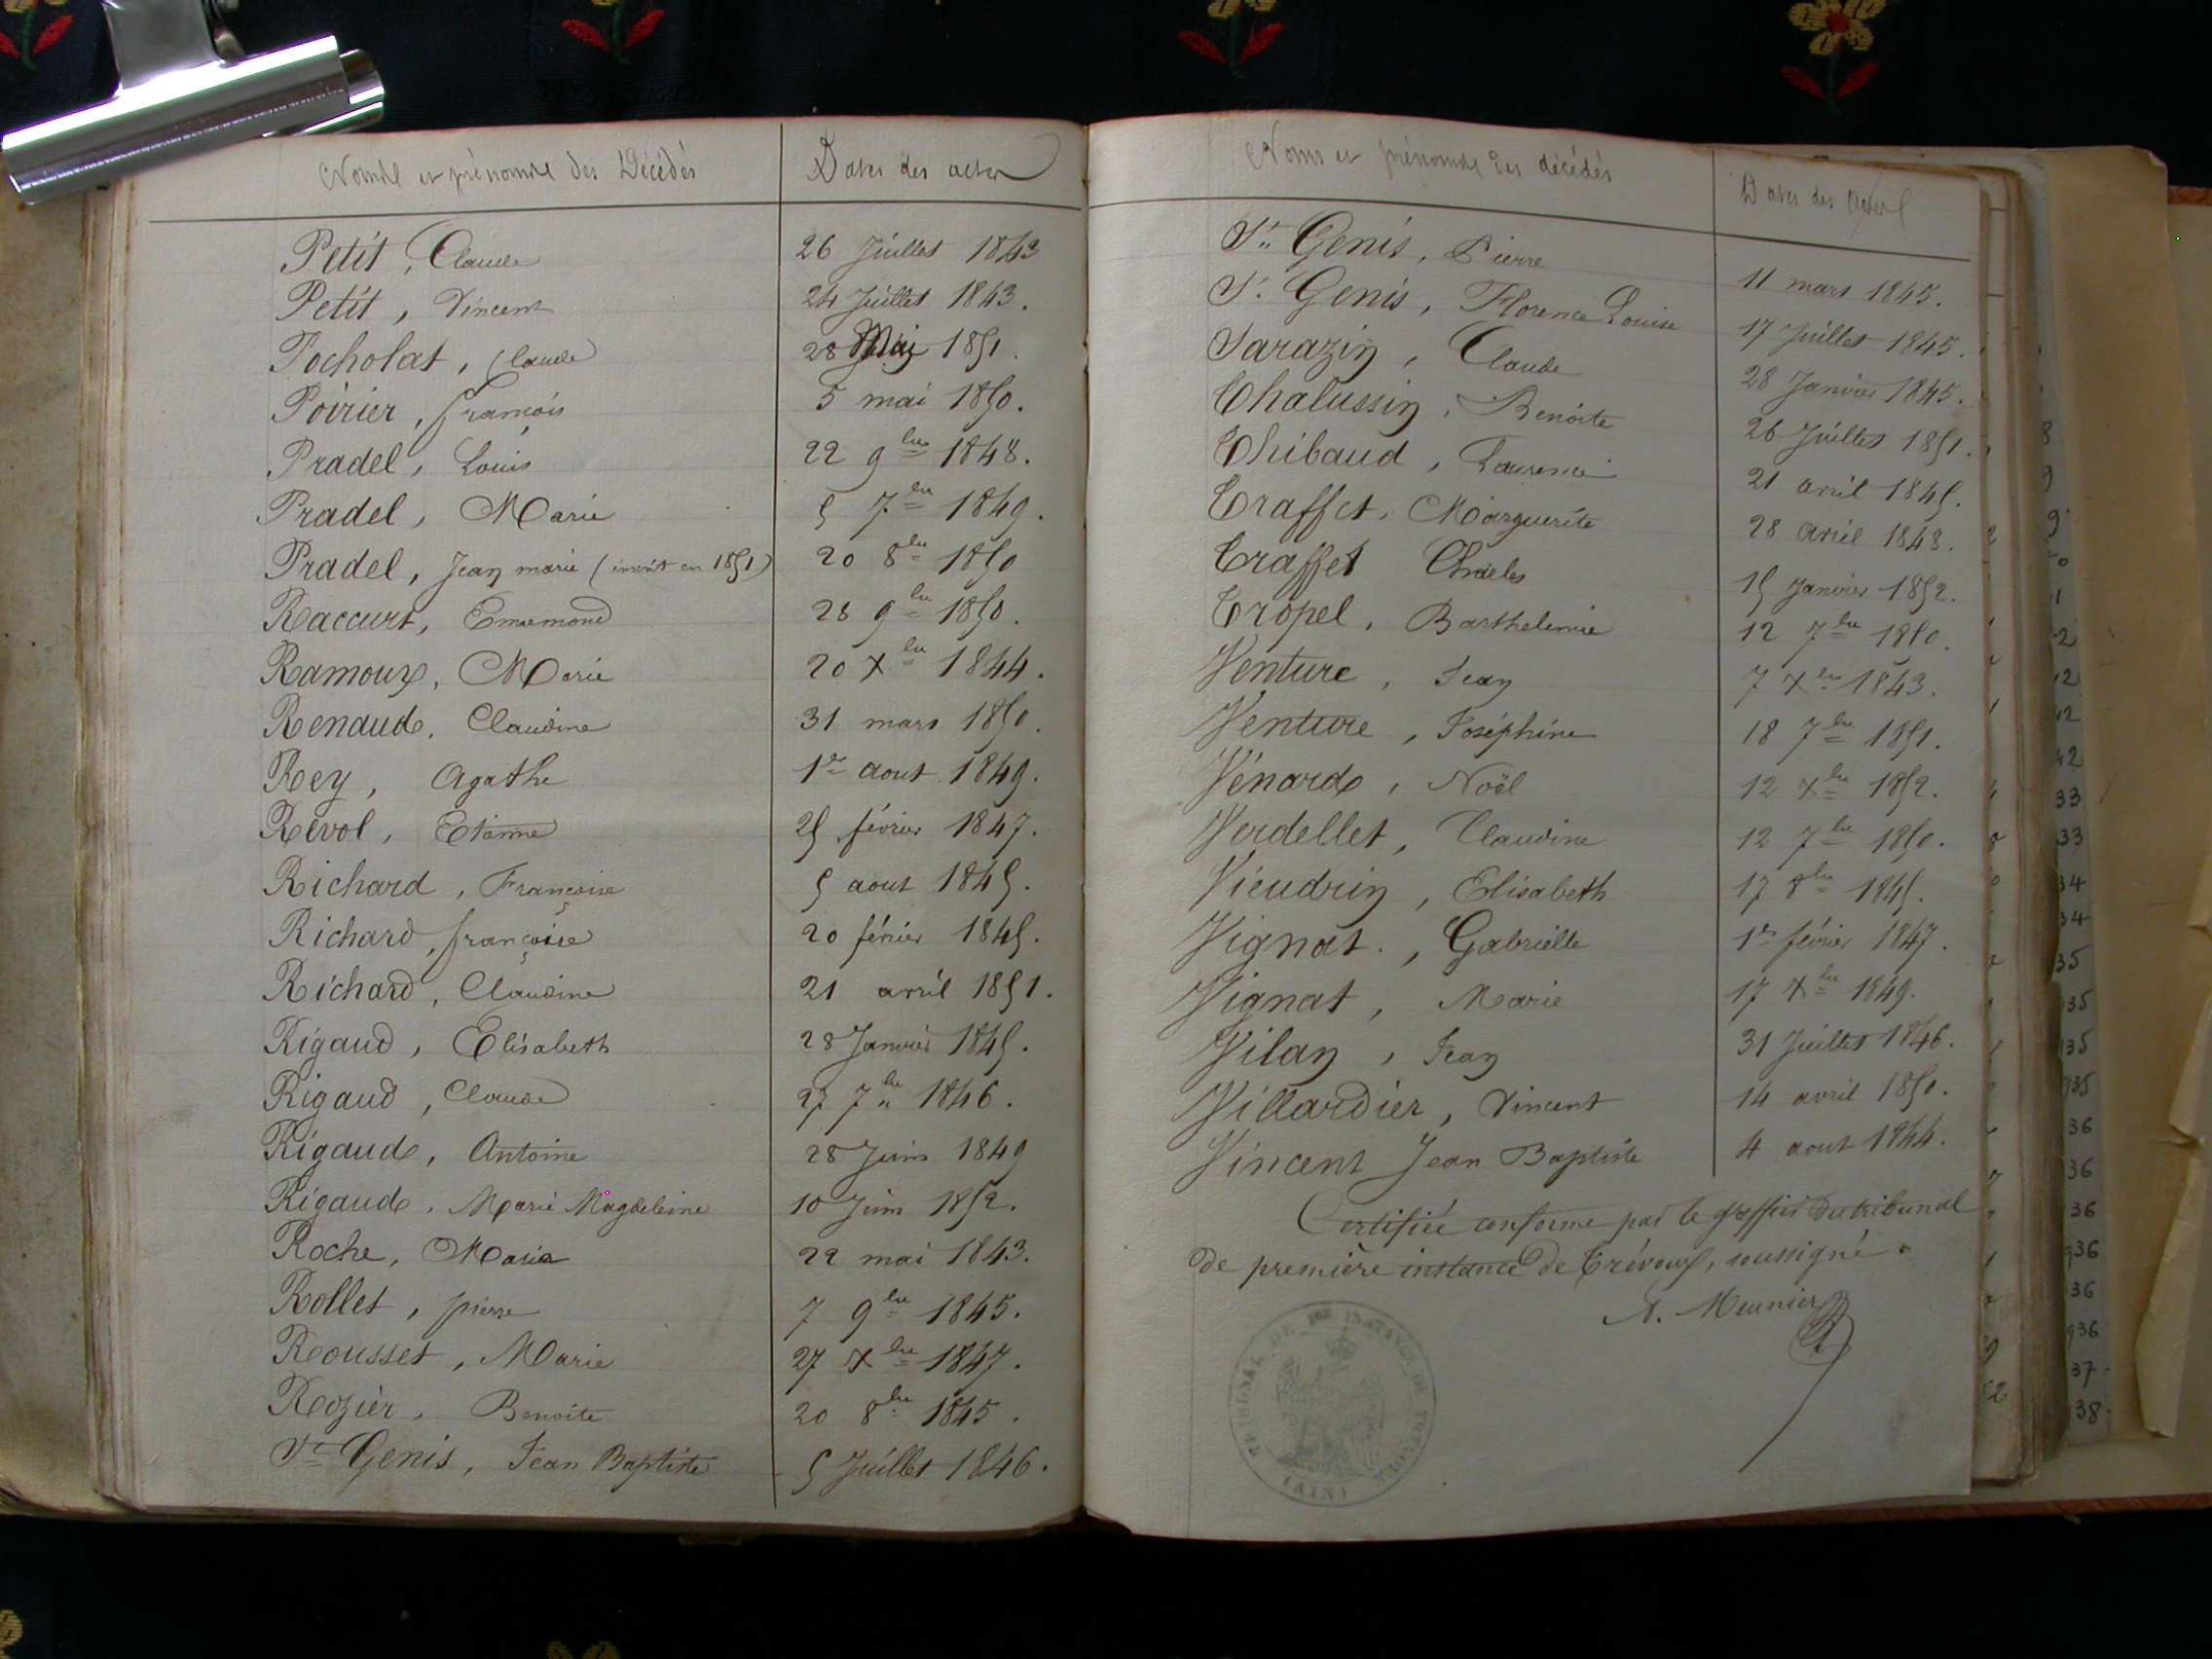 Noms et prénoms des Décédés Dates des actes
Petit, Claude 26 Juillet 1843
Petit, Vincent 24 Juillet 1843.
Pocholat, Claude 28 Mai 1851.
Poirier, françois 5 mai 1850.
Pradel, Louis 22 9bre 1848.
Pradel, Marie 5 7bre 1849.
Pradel, Jean marie (inscrit en 1851) 20 8bre 1850
Raccurt, Ennemond 28 9bre 1850.
Ramoux, Marie 20 Xbre 1844.
Renaud, Claudine 31 mars 1850.
Rey, Agathe 1er aout 1849.
Revol, Etienne 25 février 1847.
Richard, Françoise 5 aout 1845.
Richard, françoise 20 février 1845.
Richard, Claudine 21 avril 1851.
Rigaud, Elisabeth 28 Janvier 1845.
Rigaud, Claude 27 7bre 1846.
Rigaud, Antoine 28 Juin 1849
Rigaud, Marie Magdeleine 10 Juin 1852.
Roche, Maria 22 mai 1843.
Rollet, pierre 7 9bre 1845.
Rousset, Marie 27 Xbre 1847.
Rozier, Benoite 20 8bre 1845.
St Genis, Jean Baptiste 5 Juillet 1846.
Noms et prénoms des décédés Dates des actes
St Genis, Pierre 11 mars 1845.
St Genis, Florence Louise 17 Juillet 1845.
Sarazin, Claude 28 Janvier 1845.
Chalussin, Benoite 26 Juillet 1851.
Thibaud, Laurence 21 avril 1845.
Traffet, Marguerite 28 avril 1848.
Traffet Charles 15 Janvier 1852.
Tropel, Barthelemie 12 7bre 1850.
Venture, Jean 7 Xbre 1843.
Venture, Joséphine 18 7bre 1851.
Vénard, Noël 12 Xbre 1852.
Verdellet, Claudine 12 7bre 1850.
Vieudrin, Elisabeth 17 8bre 1845.
Vignat, Gabrielle 1er février 1847.
Vignat, Marie 17 Xbre 1849.
Vilan, Jean 31 Juillet 1846.
Villardier, Vincent 14 avril 1850.
Vincent Jean Baptiste 4 aout 1844.
Certifiée conforme par le greffier du tribunal
de première instance de Trévoux, soussigné.
A. Meunier
TRIBUNAL DE 1RE INSTANCE DE TREVOUX
(AIN)